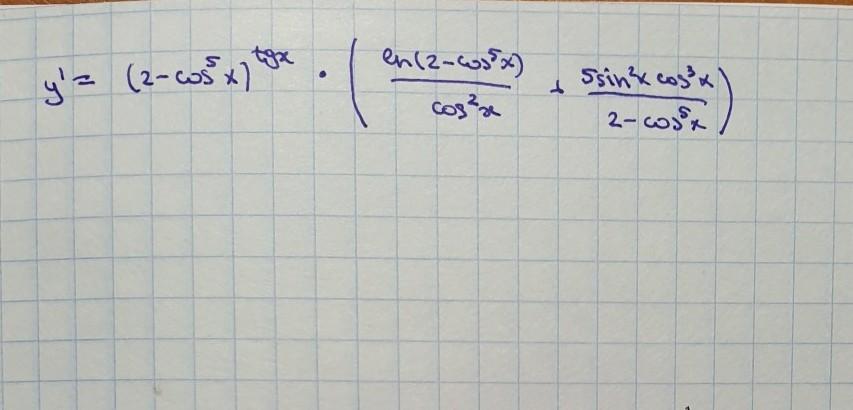 y' = (2-cos⁵x)^tgx · ( ln(2-cos⁵x)/cos²x + 5sin²x cos³x/2-cos⁵x )